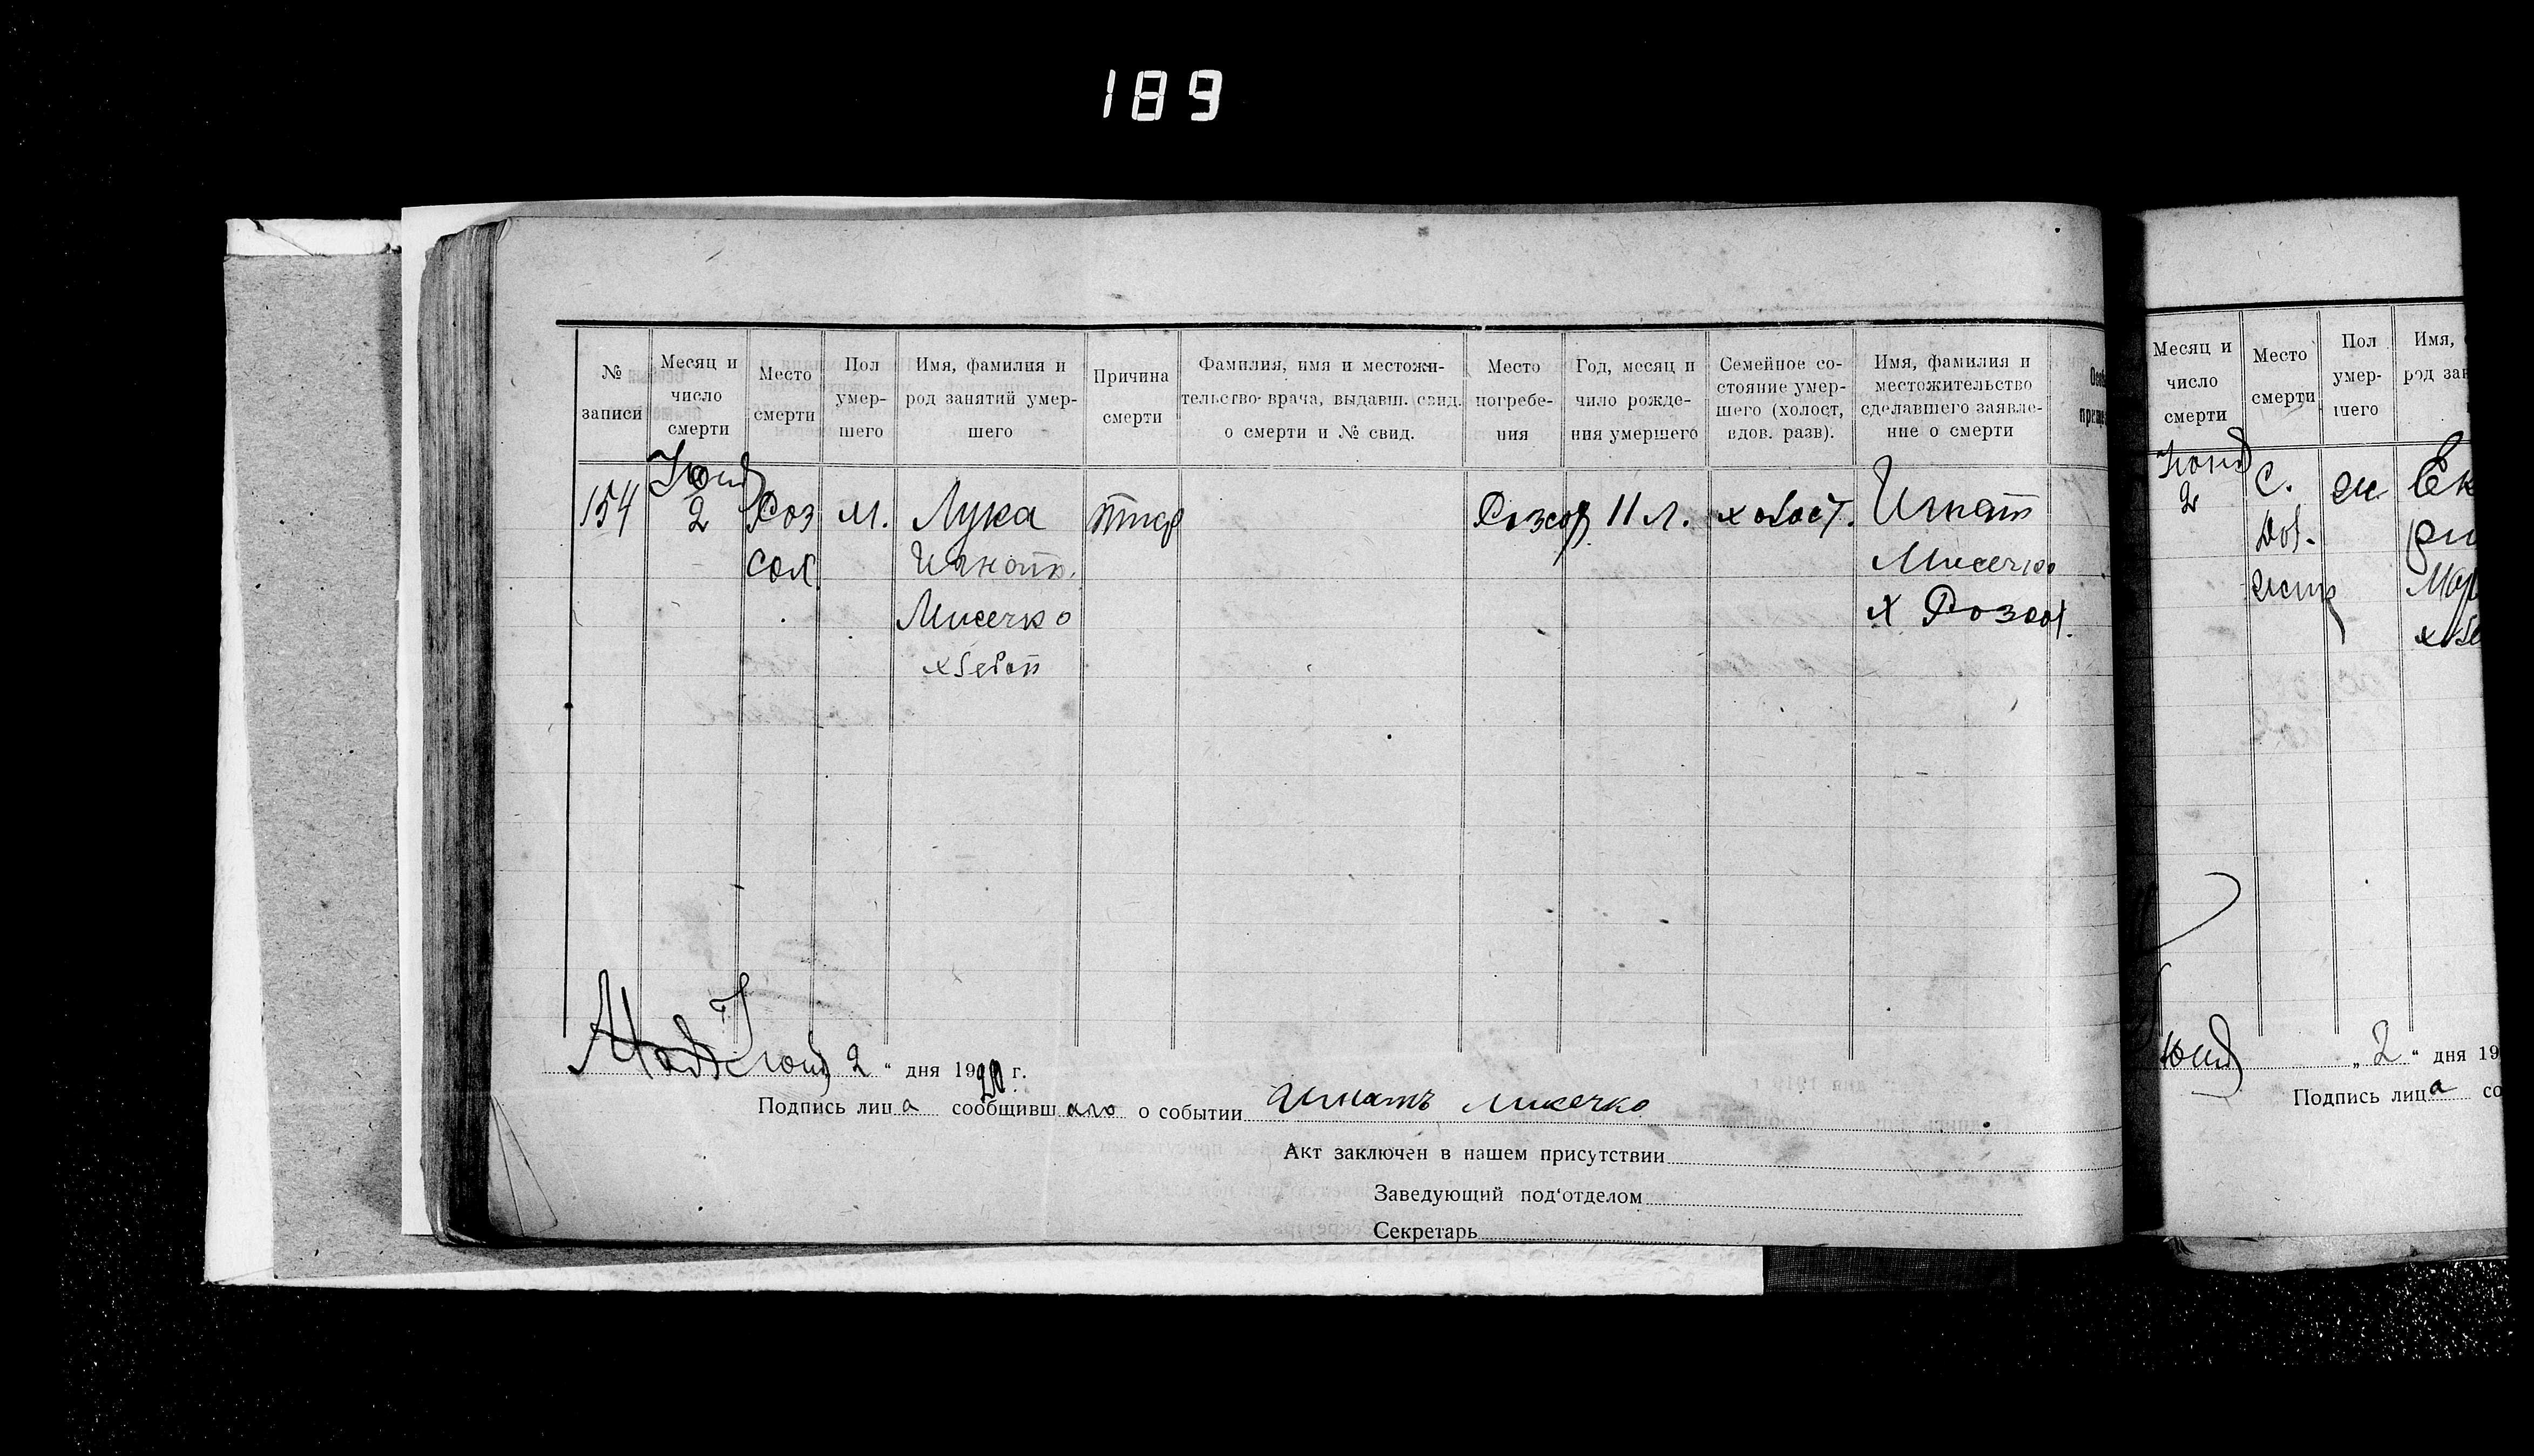 189
№ записи
Месяц и число смерти
Место смерти
Пол умер-шего
Имя, фамилия и род занятий умер-шего
Причина смерти
Фамилия, имя и местожи-тельство врача, выдавш. свид. о смерти и № свид.
Место погребе-ния
Год, месяц и чило рожде-ния умершего
Семейное со-стояние умер-шего (холост, вдов. разв).
Имя, фамилия и местожительство сделавшего заявле-ние о смерти
154
Июня
2
Роз
сох.
м.
Лука
Игнатов.
Мисечко
хлебоп
тиф
Розсох
11 л.
холост.
Игнат
Мисечко
х Розсох.
Июня 2 “ дня 1920 г.
Подпись лица сообщившаго о событии Игнатъ Мисечко
Акт заключен в нашем присутствии
Заведующий под‘отделом
Секретарь
Месяц и число смерти
Место смерти
Пол умер-шего
Имя,
род зан
Июня
2
с.
ж
Ек
Мар
хле
Июня „ 2 “ дня 19
Подпись лица со